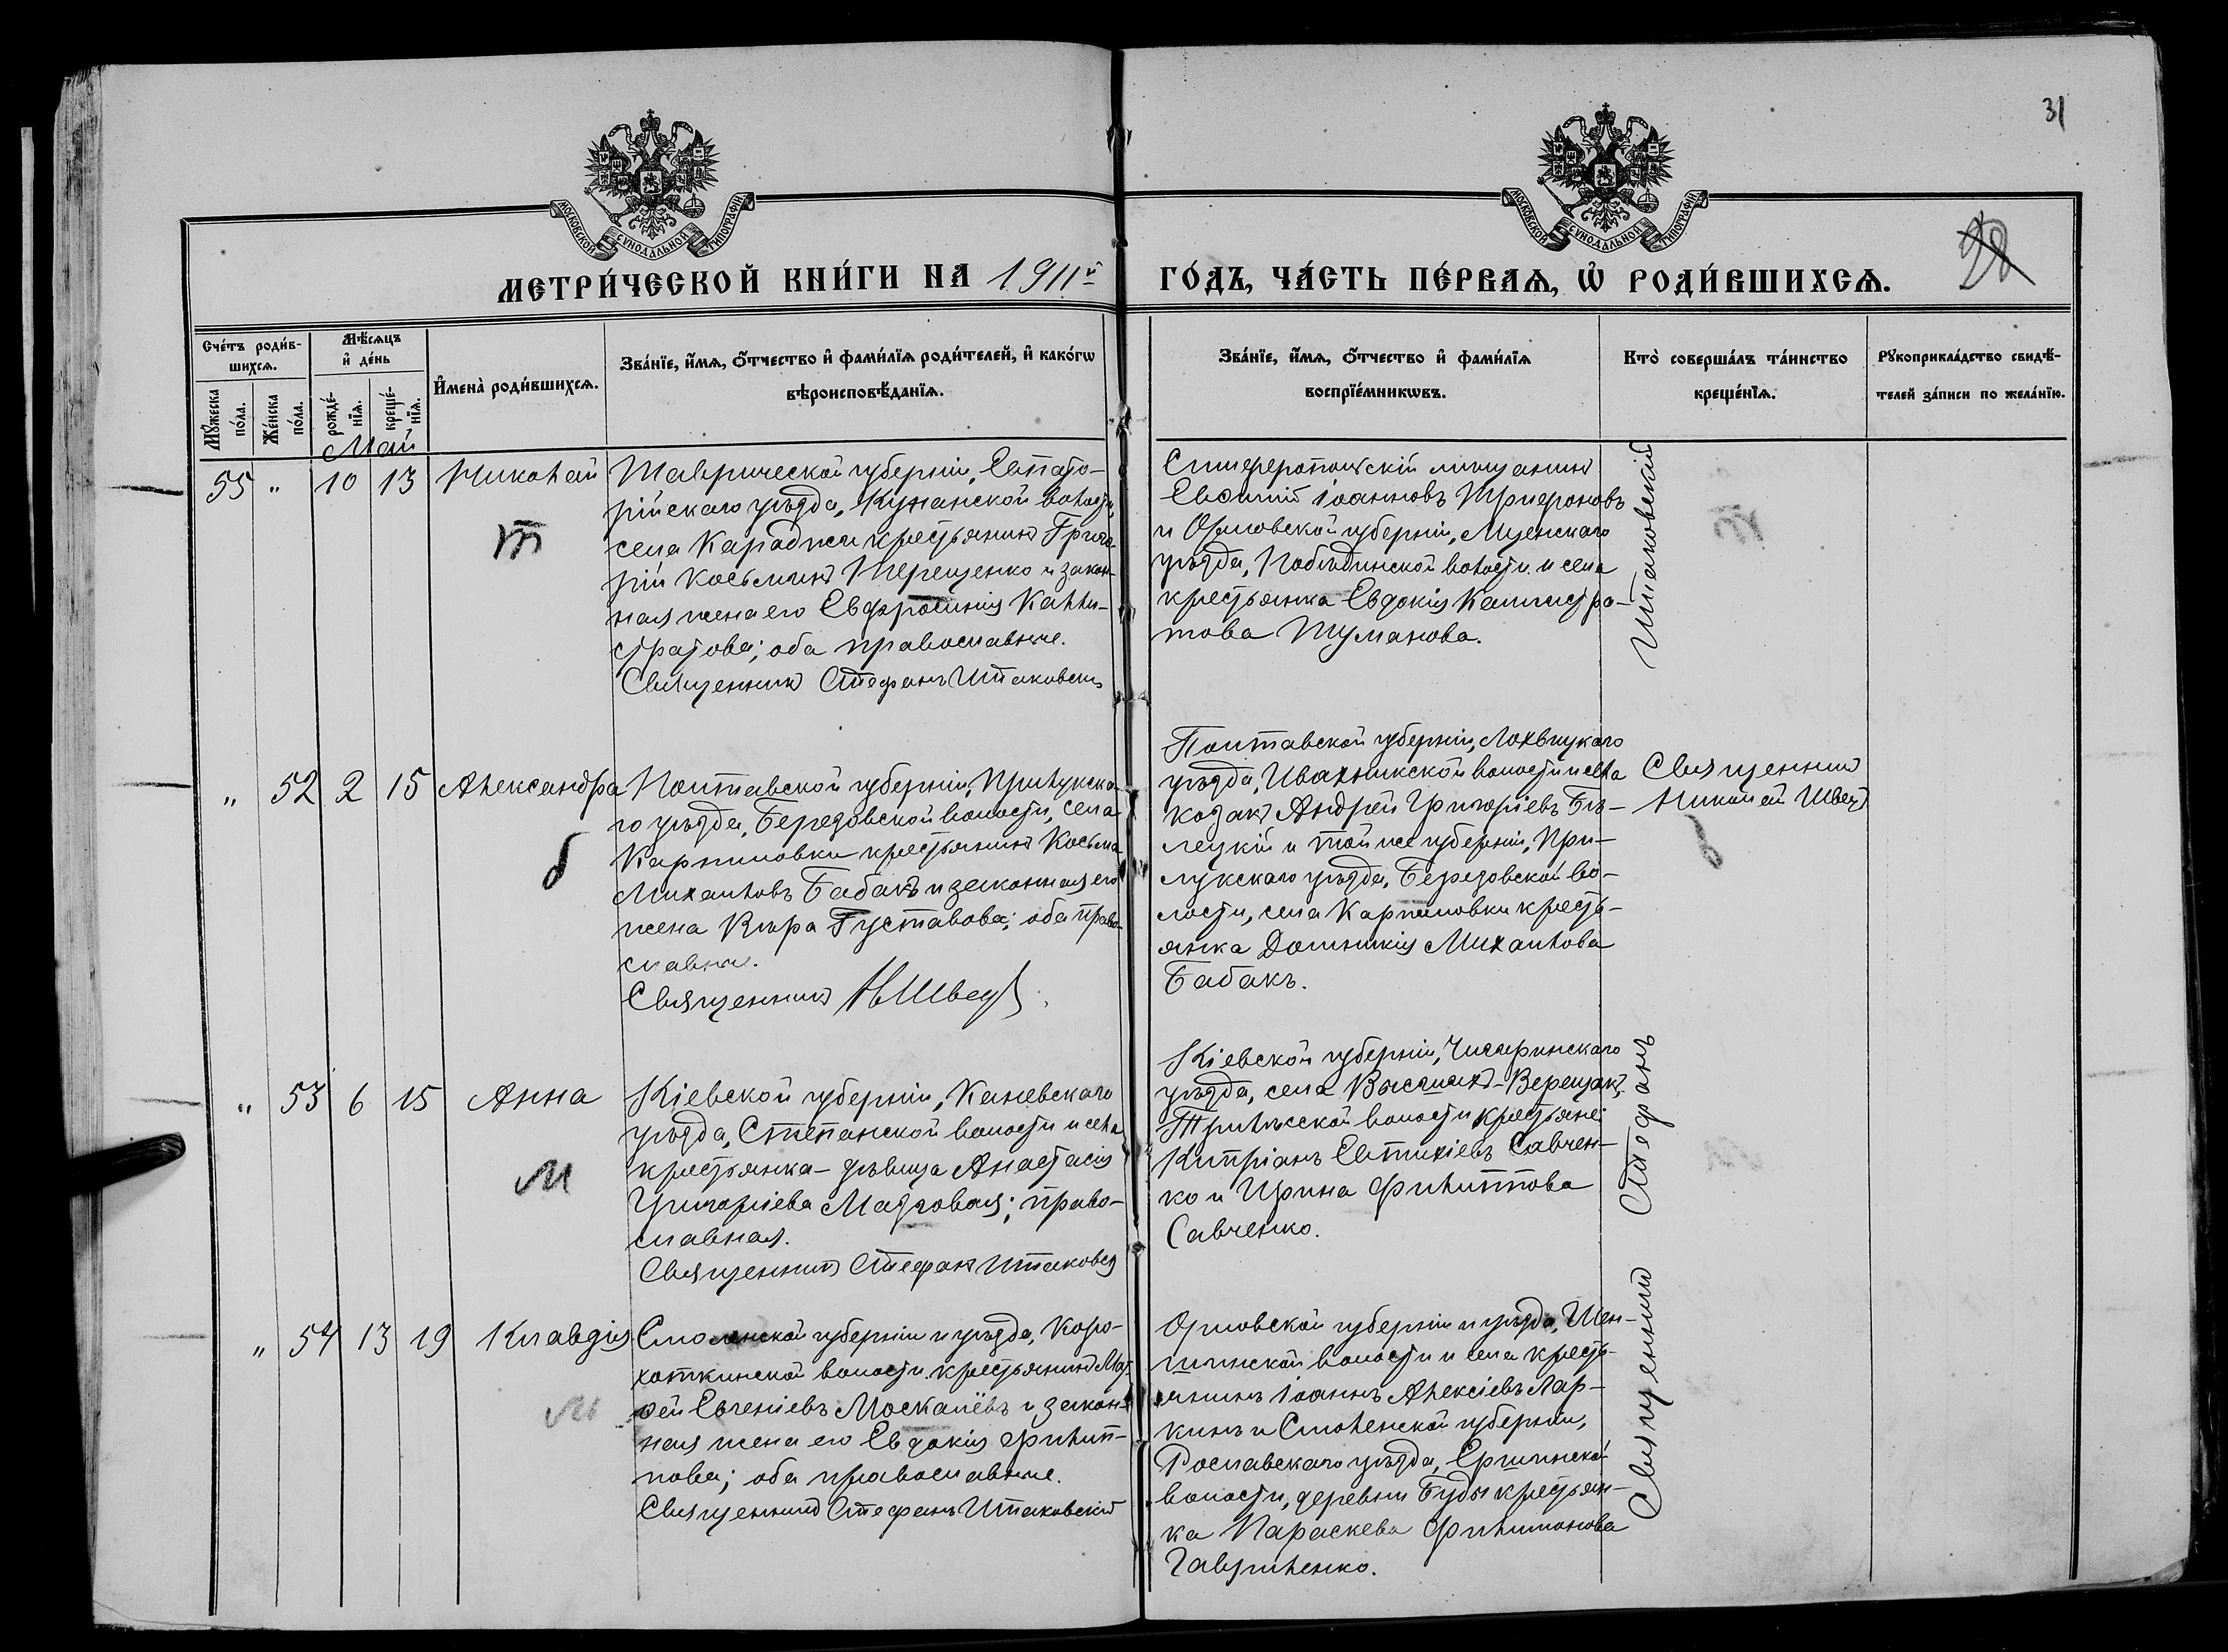 31
МОСКОВСКОЙ СУНОДАЛЬНОЙ ТИПОГРАФІИ.
МОСКОВСКОЙ СУНОДАЛЬНОЙ ТИПОГРАФІИ.
28
МЕТРИ́ЧЕСКОЙ КНИ́ГИ НА 1911й ГО́ДЪ, ЧА́СТЬ ПЕ́РВАѦ, Ѡ҆ РОДИ́ВШИХСѦ.
Сче́тъ роди́в-
шихсѧ.
Мꙋ́жеска по́ла.
Же́нска по́ла.
Мѣ́сѧцъ
и҆ де́нь
рожде́-
нїѧ.
креще́-
нїѧ.
И҆мена̀ роди́вшихсѧ.
Зва́нїе, и҆́мѧ, ѻ҆́тчество и҆ фами́лїѧ роди́телей, и҆ како́гѡ
вѣроисповѣ́данїѧ.
Зва́нїе, и҆́мѧ, ѻ҆́тчество и҆ фами́лїѧ
воспрїе́мникѡвъ.
Кто̀ соверша́лъ та́инство
креще́нїѧ.
Рꙋкоприкла́дство свидѣ́-
телей за́писи по жела́нїю.
Май
55 " 10 13 Николай
т
Таврической губерніи, Евпато-
рійскаго уѣзда, Кунанской волости,
села Караджи крестьянинъ Григо-
рій Косьминъ Терещенко и закон-
ная жена его Евфросинія Калли-
стратова; оба православные.
Священникъ Стефанъ Итаковскій
Симферопольскій мещанинъ
Евѳимій Іоанновъ Трифоновъ
и Орловской губерніи, Мценскаго
уѣзда, Побѣдинской волости и села
крестьянка Евдокія Каллистра-
това Туманова.
" 52 2 15 Александра
б
Полтавской губерніи, Прилукска-
го уѣзда, Березовской волости, села
Карпиловки крестьянинъ Косьма
Михаиловъ Бабакъ и законная его
жена Вѣра Густавова; оба право-
славные.
Священникъ Н Швецъ.
Полтавской губерніи, Лохвицкаго
уѣзда, Ивахникской волости и села
козакъ Андрей Григоріевъ Бѣ-
лецкій и той же губерніи, При-
лукскаго уѣзда, Березовской во-
лости, села Карпиловки кресть-
янка Домникія Михаилова
Бабакъ.
Священникъ
Николай Швецъ
" 53 6 15 Анна
м
Кіевской губерніи, Каневскаго
уѣзда, Степанской волости и села
крестьянка-дѣвица Анастасія
Григоріева Мазговая; право-
славная.
Священникъ Стефанъ Итаковскій
Кіевской губерніи, Чигиринскаго
уѣзда, села Высшихъ-Верещакъ,
Трилѣсской волости крестьяне:
Кипріанъ Евтихіевъ Савчен-
ко и Ирина Филиппова
Савченко.
" 54 13 19 Клавдія
м
Смоленской губерніи и уѣзда, Коро-
хоткинской волости крестьянинъ Мат-
ѳей Евгеніевъ Москалёвъ и закон-
ная жена его Евдокія Филип-
пова; оба православные.
Священникъ Стефанъ Итаковскій
Орловской губерніи и уѣзда, Шен-
шинской волости и села кресть-
янинъ Іоаннъ Алексіевъ Лар-
кинъ и Смоленской губерніи,
Рославскаго уѣзда, Ершинской
волости, деревни Буды крестьян-
ка Параскева Филимонова
Гавриленко.
Священникъ Стефанъ Итаковскій